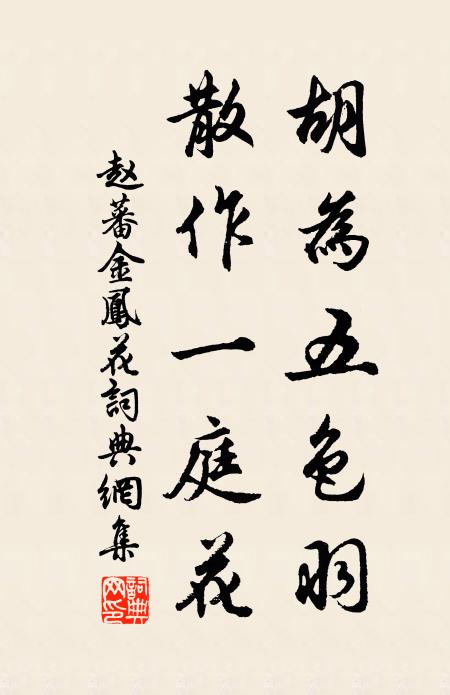 胡為五色羽
散作一庭花
赵蕃金鳳花詞典網集
詞典网印